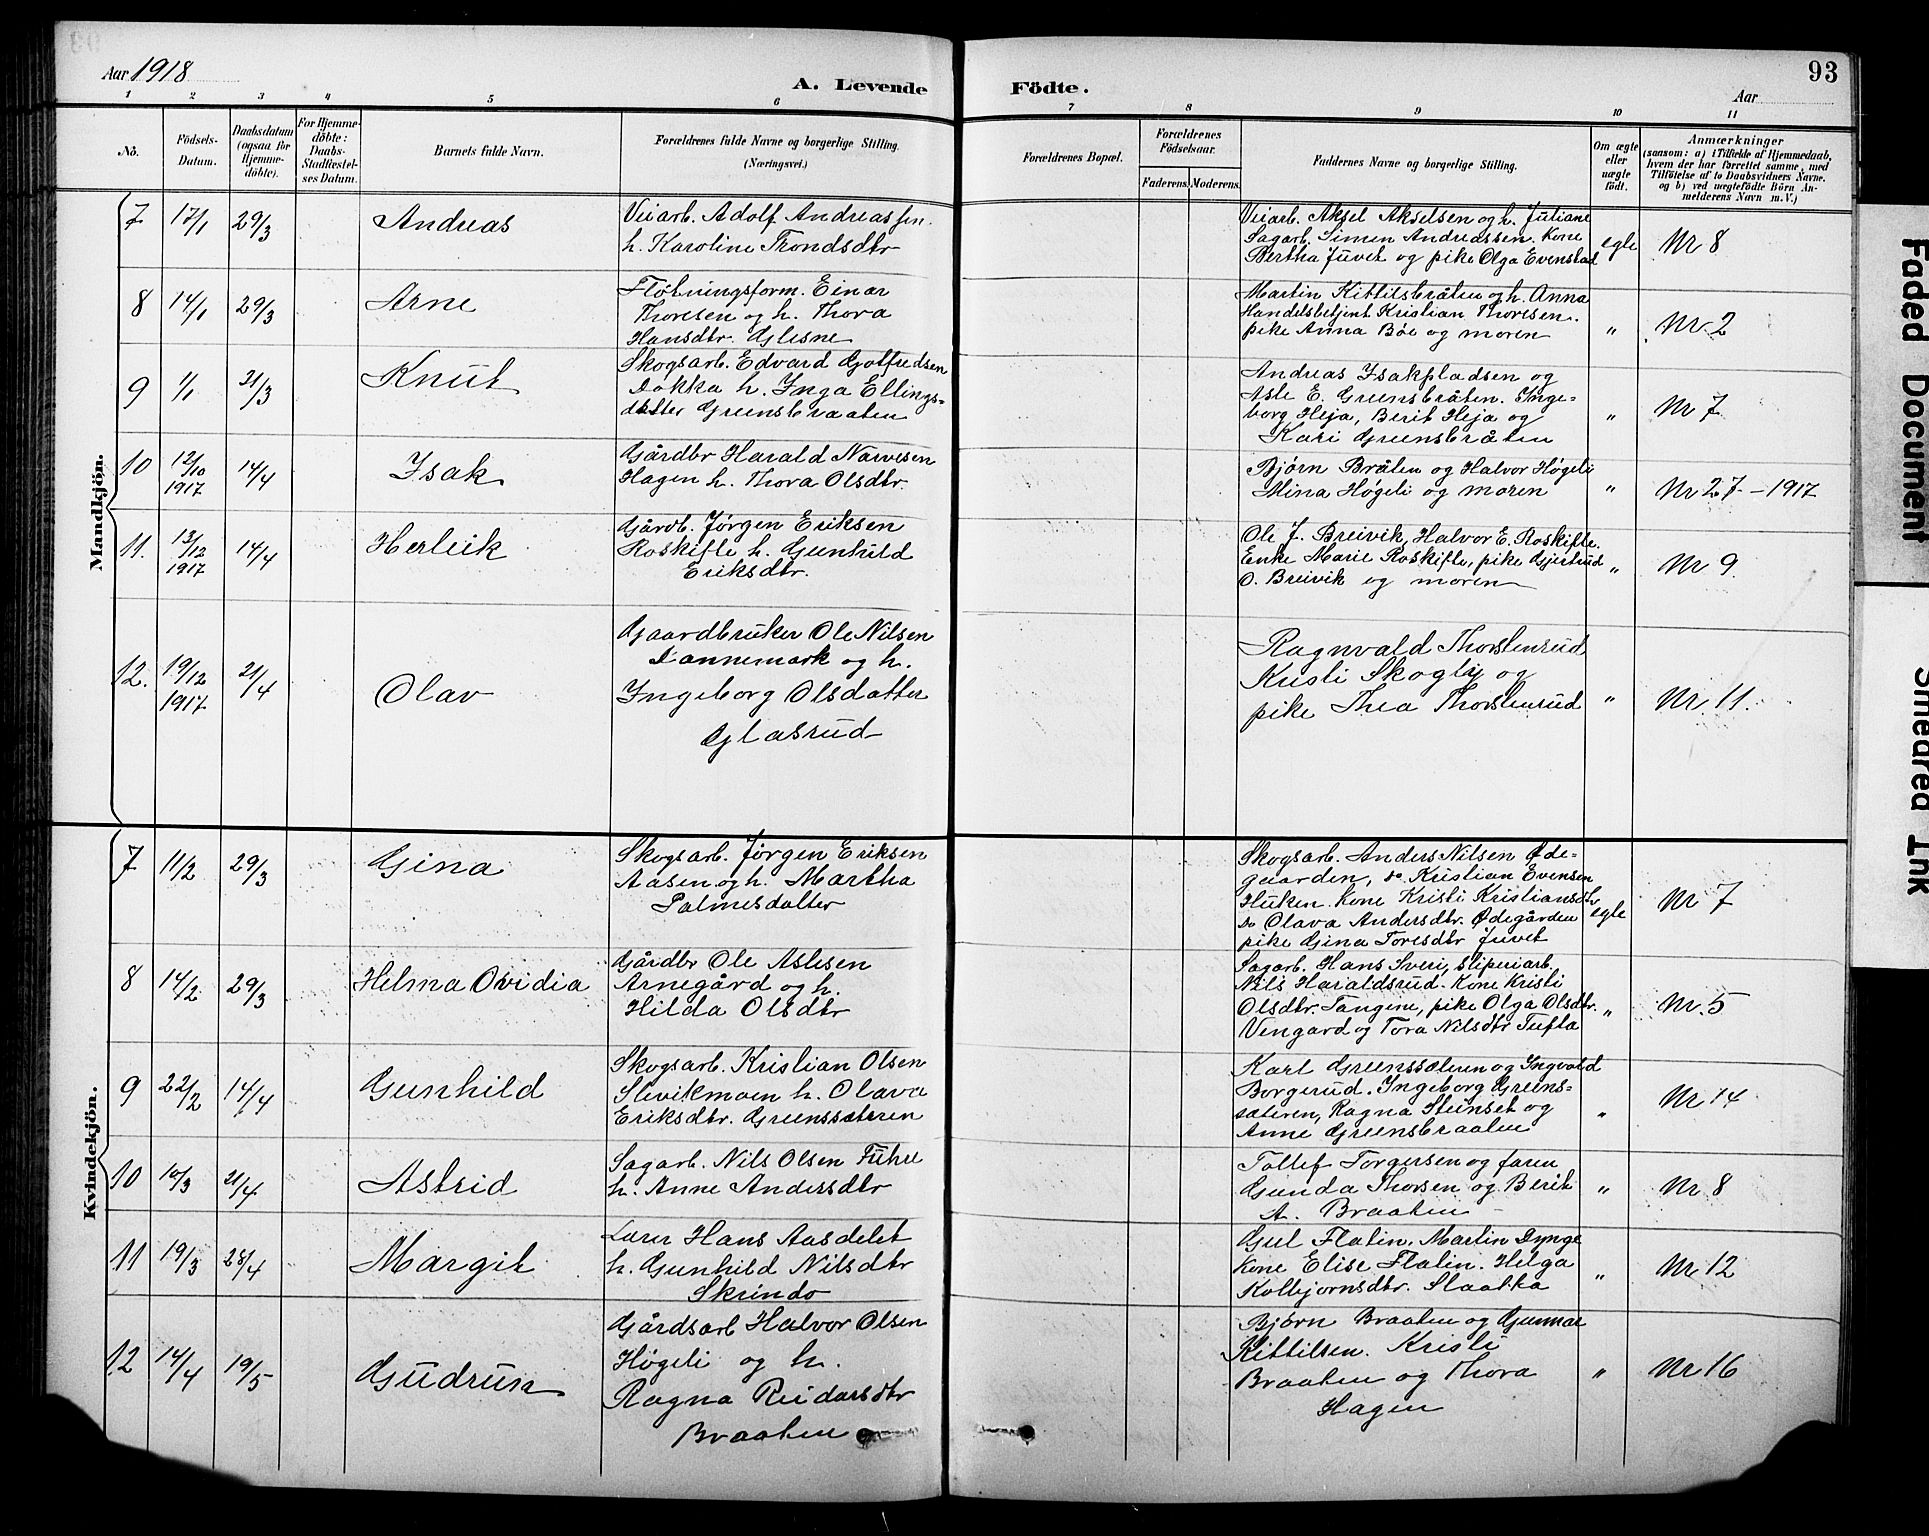 Aar 1918
A. Levende
Födte.
Aar
93
1 2 3 4 5 6 7 8 9 10 11
Nö.
Födsels-Datum.
Daabsdatum (ogsaa for Hjemmedöbte).
For Hjemmedöbte: Daabs-Stadfæstelses Datum.
Barnets fulde Navn.
Forældrenes fulde Navne og borgerlige Stilling. (Næringsvei.)
Forældrenes Bopæl.
Forældrenes Födselsaar.
Faderens. Moderens.
Faddernes Navne og borgerlige Stilling.
Om ægte eller uægte födt.
Anmærkninger
(saasom: a) i Tilfælde af Hjemmedaab, hvem der har forrettet samme, med Tilföielse af to Daabsvidners Navne, og b) ved uægtefödte Börn Anmelderens Navn m.V.)
Mandkjön.
7 17/1 29/3 Andreas
Veiarb. Adolf Andreassen.
h. Karoline Trondsdtr
Veiarb. Aksel Akselsen og h. Juliane
Sagarb. Simen Andreassen. Kone
Bertha Juvet og pike Olga Evenstad
egte Nr 8
8 14/1 29/3 Arne
Fløtningsform. Einar
Thoresen og h. Thora
Hansdtr. Glesne
Martin Kittilsbråten og h. Anna
Handelsbetjent Kristian Thoresen.
pike Anna Böe og moren
" Nr. 2
9 1/1 21/3 Knut
Skogsarb. Edvard Gotfredsen
Dokka h. Inga Ellings-
datter Greensbraaten
Andreas Isakpladsen og
Asle E. Greensbråten. Inge-
borg Heja, Berit Heja og
Kari Greensbråten
" Nr 7
10 12/10 1917 14/4 Isak
Gårdbr Harald Narvesen
Hagen h. Thora Olsdtr.
Bjørn Bråten og Halvor Høgeli
Mina Høgeli og moren
" Nr 27 - 1917
11. 13/12 1917 14/4 Herleik
Gårdb. Jørgen Eriksen
Roskifte h. Gunhild
Eriksdtr.
Ole J. Breivik, Halvor E. Roskifte.
Enke Marie Roskifte, pike Gjertrud
O. Breivik og moren
" Nr 9.
12. 19/12 1917 21/4 Olav
Gaardbruker Ole Nilsen
Dannemark og h.
Ingeborg Olsdatter
Glasrud
Ragnvald Thorstenrud
Kristi Skogly og
pike Thea Thorstenrud
" Nr. 11.
Kvindekjön.
7 11/2 29/3 Gina
Skogsarb. Jørgen Eriksen
Aasen og h. Martha
Palmesdatter
Skogsarb. Anders Nilsen Øde-
gaarden, do Kristian Evensen
Huken. Kone Kristi Kristiansdtr
do Olava Andersdtr. Ødegården
pike Gina Toresdtr Juvet
egte Nr 7
8 14/2 29/3 Helma Ovidia
Gårdbr Ole Aslesen
Arnegård og h.
Hilda Olsdtr
Sagarb. Hans Sveri, Sliperiarb.
Nils Haraldsrud. Kone Kristi
Olsdtr. Tangene, pike Olga Olsdtr.
Vengard og Tora Nilsdtr Tufta
" Nr. 5
9 22/2 14/4 Gunhild
Skogsarb. Kristian Olsen
Slevikmoen h. Olava
Eriksdtr. Greenssæteren
Karl Greenssæteren og Ingvald
Borgerud. Ingeborg Greens-
sæteren, Ragna Steinset og
Anne Greensbraaten
" Nr 14
10 10/3 21/4 Astrid
Sagarb. Nils Olsen
h. Anne Andersdtr
Tollef Torgersen og faren
Gunda Thorsen og Berit
A. Braaten
" Nr 8
11 19/3 28/4 Margit
Lærer Hans Aasdelet
h. Gunhild Nilsdtr
Skrindo
Gul Flatin. Martin Dynge
Kone Elise Flatin. Helga
Kolbjørnsdtr. Slaatka
" Nr 12
12 14/4 19/5 Gudrun
Gårdsarb Halvor Olsen
Høgeli og h.
Ragna Reidarsdtr
Braaten
Bjørn Braaten og Gunnar
Kittilsen. Kristi
Braaten og Thora
Hagen
" Nr 16
Faded Document
Smeared Ink